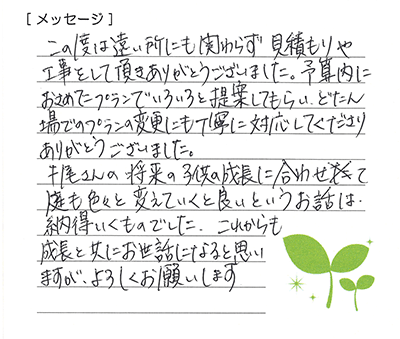 [メッセージ]
この度は遠い所にも関わらず見積もりや
工事をして頂きありがとうございました。予算内に
おさめてたプランでいろいろと提案してもらい、どたん
場でのプランの変更にも丁寧に対応してくださり
ありがとうございました。
牛尾さんの将来の子供の成長に合わせて
庭も色々と変えていくと良いというお話は、
納得いくものでした。これからも
成長と共にお世話になると思い
ますが、よろしくお願いします